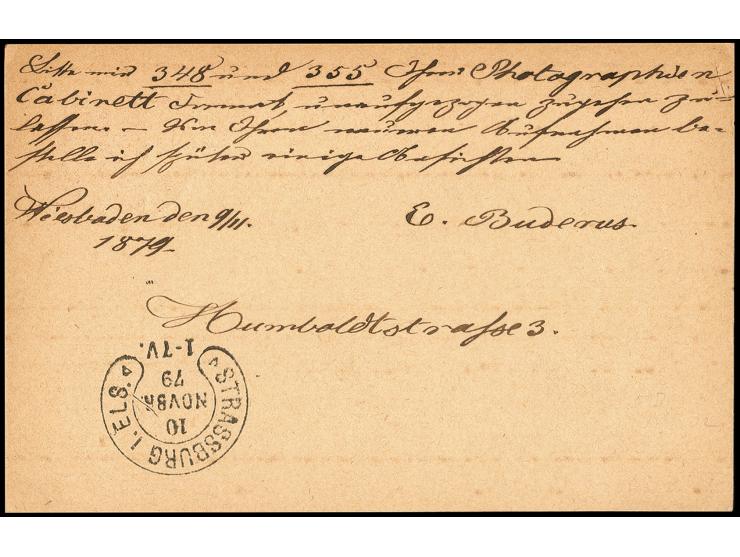 Bitte mir 348 und 355 Ihrer Photographien
Cabinett Format, unaufgezogen zugehen zu
lassen. – Von Ihren neuen Aufnahmen be-
stelle ich später einige Ansichten
Wiesbaden den 9/11.
1879
E. Buderus.
Humboldtstrasse 3.
STRASSBURG I. ELS.
10
NOVBR
79
1-7V.